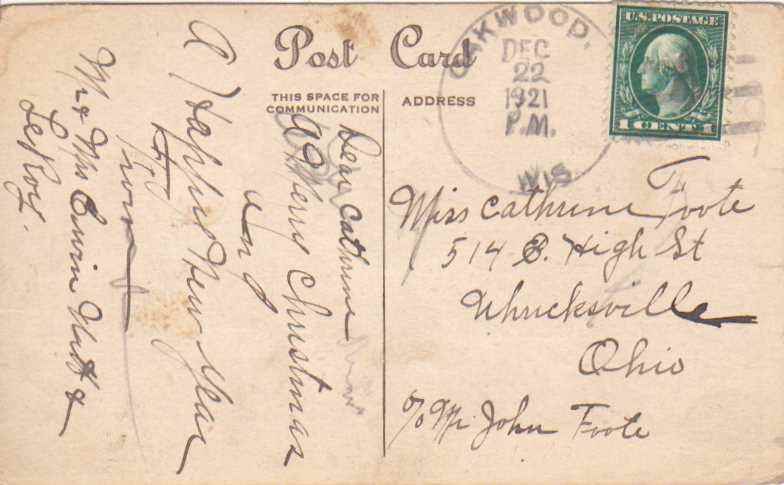 Post Card
THIS SPACE FOR COMMUNICATION
ADDRESS
OAKWOOD.
DEC
22
1921
P.M.
WIS
U.S. POSTAGE
1 CENT 1
Dear Cathrine
A Merry Christmas
and
A Happy New Year
from
Mr & Mrs Erwin &
LeRoy.
Miss Cathrine Foote
514 E. High St
Uhricksville
Ohio
c/o Mr John Foote